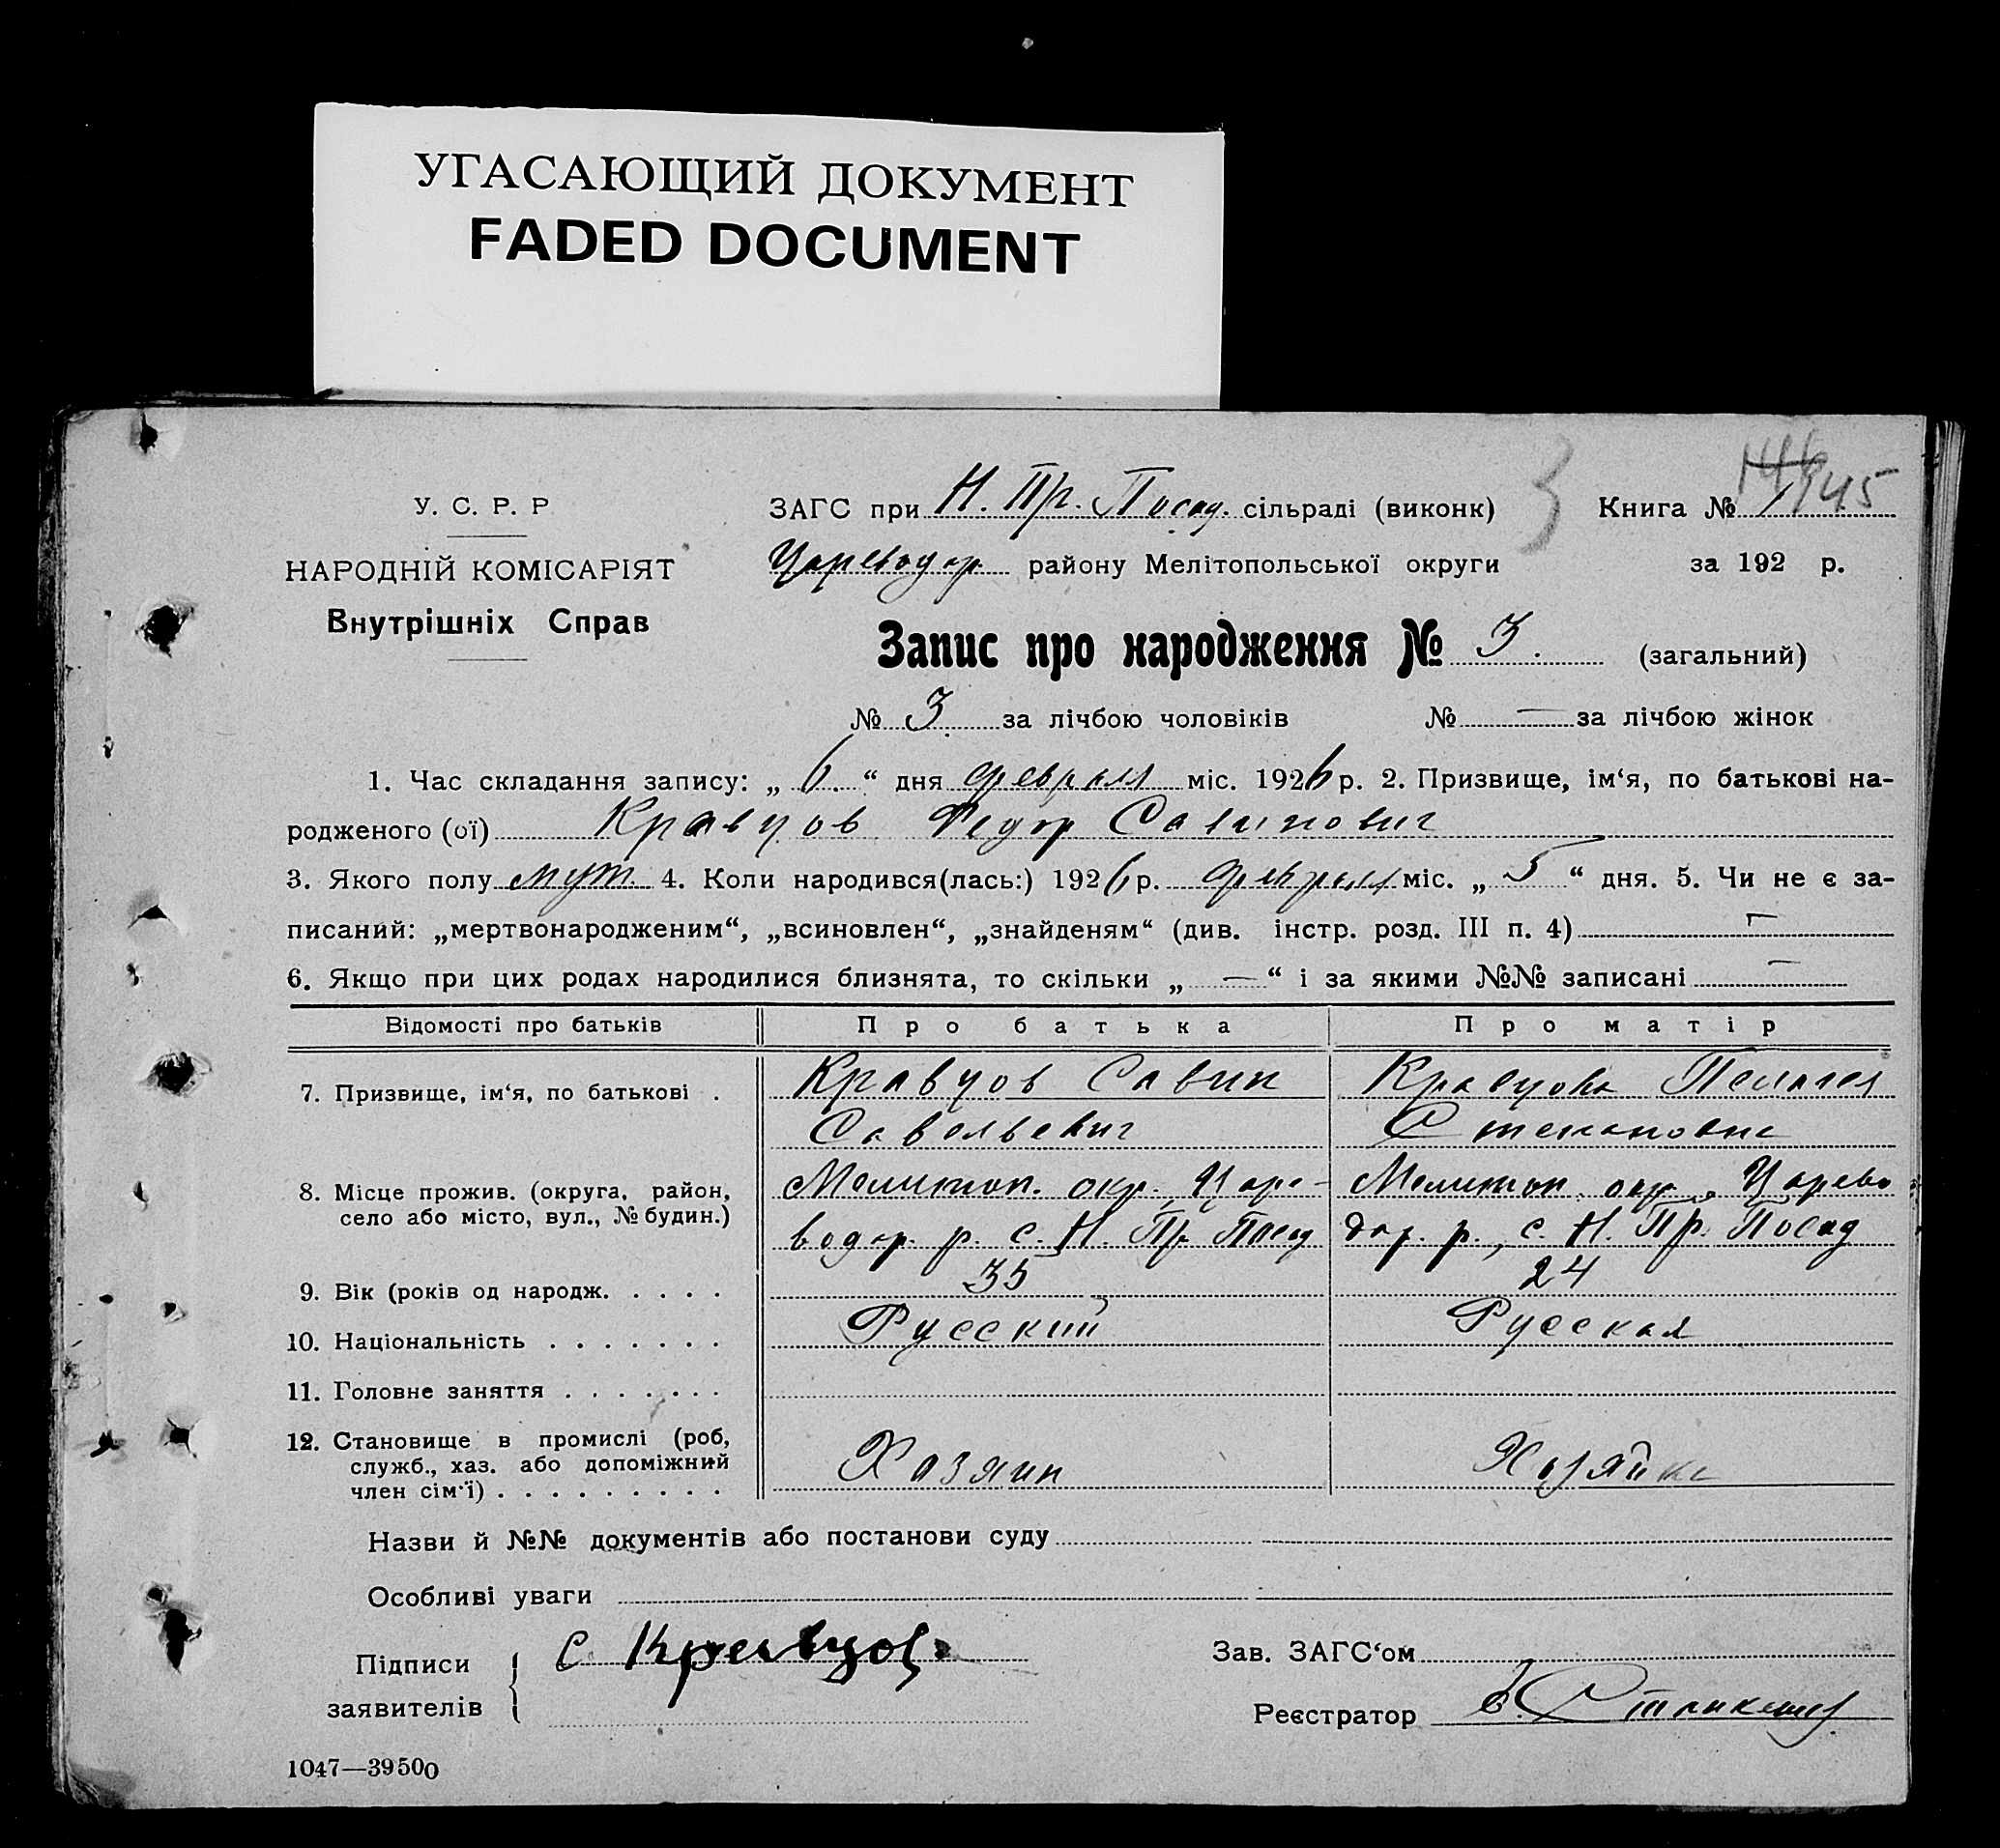 УГАСАЮЩИЙ ДОКУМЕНТ
FADED DOCUMENT
У. С. Р. Р
НАРОДНІЙ КОМІСАРІЯТ
Внутрішніх Справ
ЗАГС при Н. Пр. Посад. сільраді (виконк) 3 Книга № 145
Цареводар. району Мелітопольської округи за 192 р.
Запис про народження № 3. (загальний)
№ 3 за лічбою чоловіків № — за лічбою жінок
1. Час складання запису: „ 6. “ дня февраля міс. 1926 р. 2. Призвище, ім‘я, по батькові на-
родженого (ої) Кравцов Федор Савинович
3. Якого полу муж. 4. Коли народився(лась:) 1926 р. февраля міс. „ 5 “ дня. 5. Чи не є за-
писаний: „мертвонародженим“, „всиновлен“, „знайденям“ (див. інстр. розд. III п. 4) —
6. Якщо при цих родах народилися близнята, то скільки „ — “ і за якими №№ записані —
Відомості про батьків Про батька Про матір
7. Призвище, ім‘я, по батькові . Кравцов Савин Кравцова Пелагея
Савельевич Степановна
8. Місце прожив. (округа, район, Мелитоп. окр. Царе- Мелитоп. окр., Царево
село або місто, вул., № будин.) водар. р. с. Н. Пр. Посад дар. р., с. Н. Пр. Посад
9. Вік (років од народж. . . . . 35 24
10. Національність . . . . . . . Русский Русская
11. Головне заняття . . . . . . .
12. Становище в промислі (роб,
служб., хаз. або допоміжний Хазяин Хозяйка
член сім‘ї) . . . . . . . . .
Назви й №№ документів або постанови суду
Особливі уваги
Підписи С. Кравцов Зав. ЗАГС‘ом
заявителів Реєстратор
1047—39500